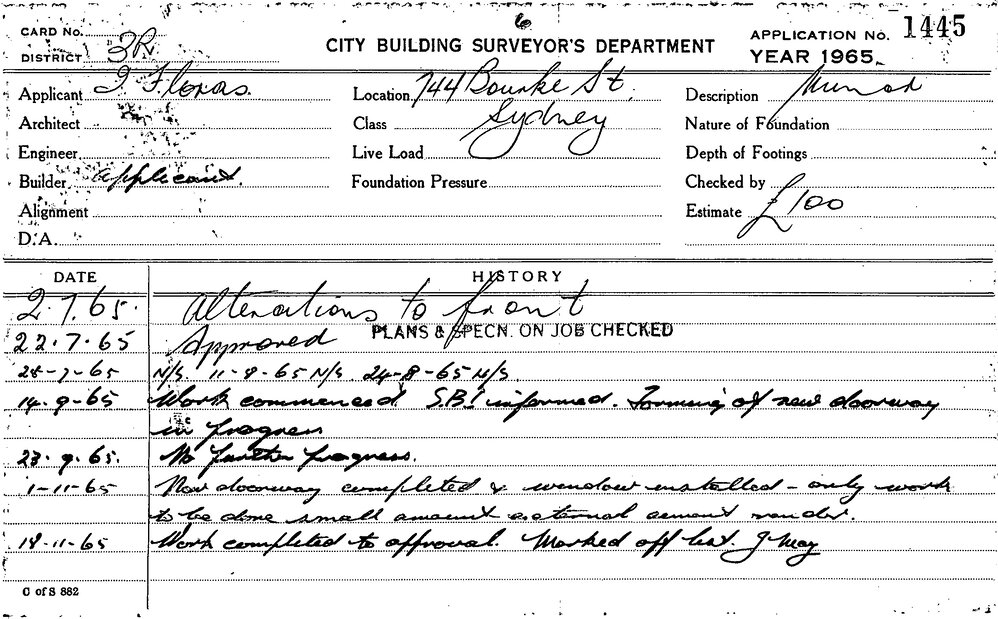 6
CARD No.
DISTRICT 3R
CITY BUILDING SURVEYOR'S DEPARTMENT
APPLICATION No. 1445
YEAR 1965
Applicant J Floras.
Location 744 Bourke St.
Description Minor
Architect
Class Sydney
Nature of Foundation
Engineer
Live Load
Depth of Footings
Builder applicant.
Foundation Pressure
Checked by
Alignment
Estimate £100
D.A.
DATE HISTORY
2.7.65. Alterations to front
PLANS & SPECN. ON JOB CHECKED
22.7.65 Approved
28-7-65 N/S. 11-8-65 N/S. 24-8-65 N/S.
14-9-65 Work commenced. S.B.I informed. Forming of new doorway
in progress
23.9.65. No further progress.
1-11-65 New doorway completed & window installed - only work
to be done small amount external cement render.
18-11-65 Work completed to approval. Marked off list. J May
C of S 882